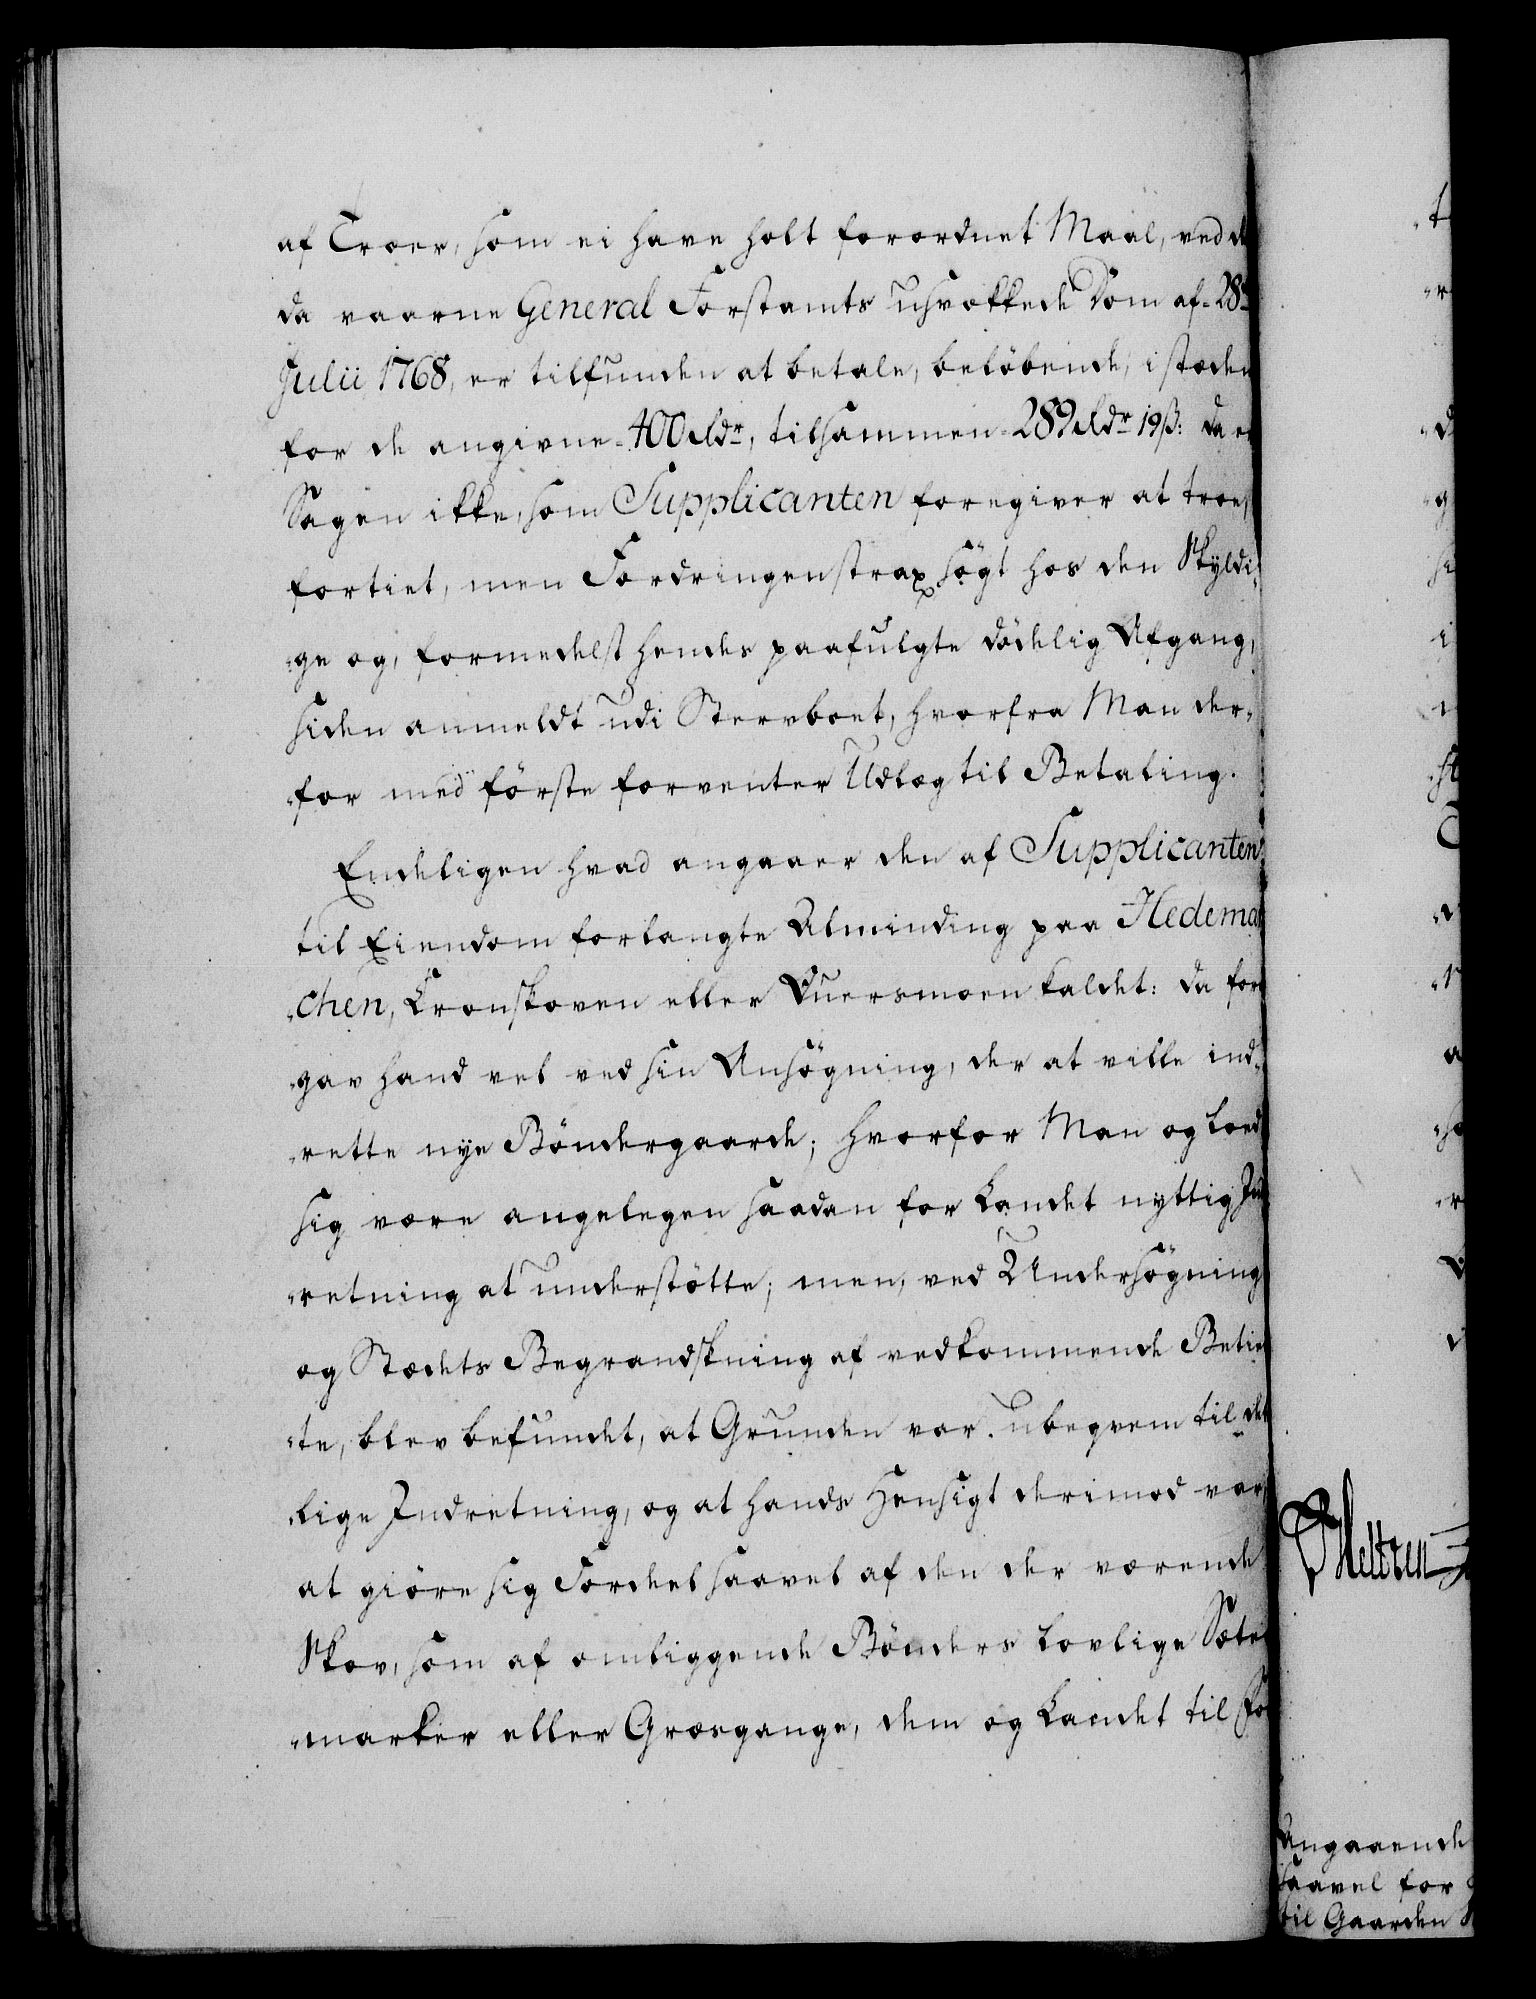 af Troer, som ei have holt forordnet Maal, ved d
da vaarne General Forstamts usvækkede Dom af 28de
Julii 1768, er tilfunden at betale, beløbende, i stæden
for de angivne 400 Rdr, tilsammen 289 Rdr 19ß: da er
Sagen ikke, som Supplicanten foregiver at troe,
fortiet, men Fordringen strax søgt hos den Skyldi-
ge og, formedelst hendes paafulgte dødelig Afgang,
siden anmeldt udi Stervboet, hvorfra Man der-
for med første forventer Udlæg til Betaling.
Endeligen hvad angaaer den af Supplicanten
til Eiendom forlangte Alminding paa Hedemar
chen, Cronskoven eller Quersmoen kaldet: da fore
gav hand vel ved sin Ansøgning, der at ville ind-
rette nye Bøndergaarde; hvorfor Man og loed
sig være angelegen saadan for Landet nyttig Ind
retning at understøtte; men, ved Undersøgning
og Stædets Begrandskning af vedkommende Betien
te, blev befundet, at Grunden var ubeqvem til det
lige Indretning, og at hands Hensigt derimod var,
at giøre sig Fordeel saavel af den der værende
Skov, som af omliggende Bønders lovlige Sæter
marker eller Græsgange, dem og Landet til For
Angaaende
saavel for
til Gaarden